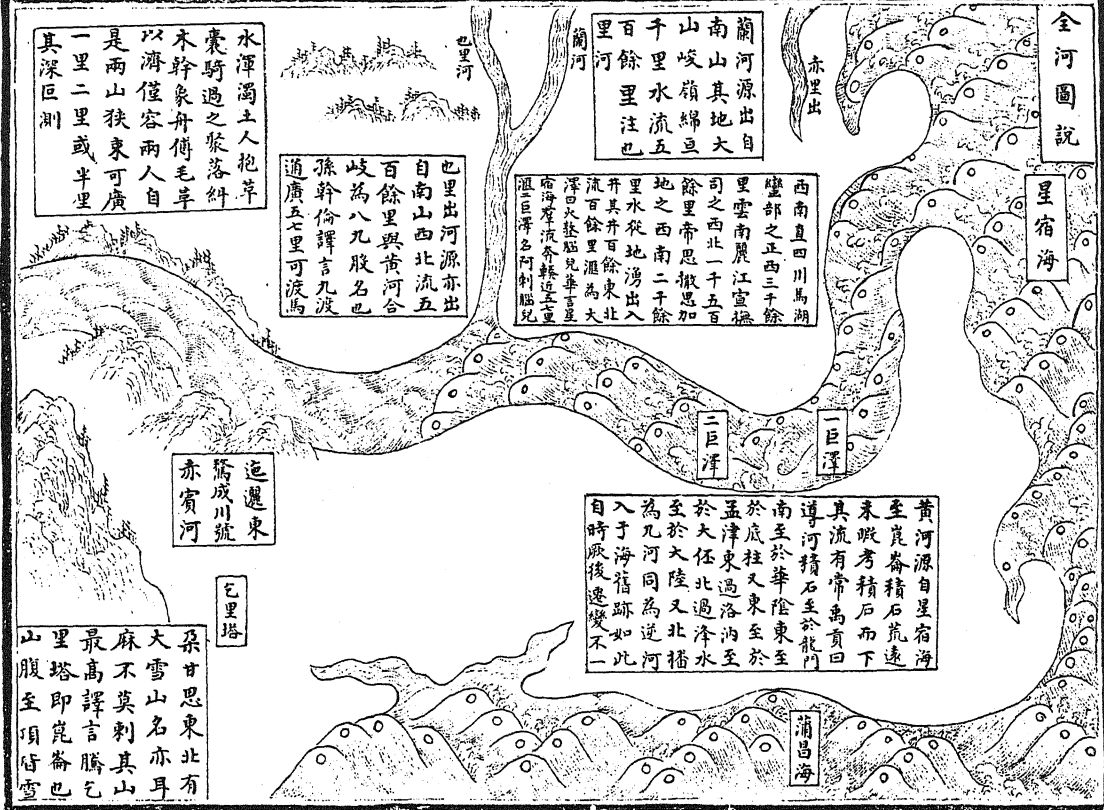 全河圖說
星宿海
赤里出
蘭河源出自
南山其地大
山峻嶺綿亘
千里水流五
百餘里注也
里河
西南直四川馬湖
蠻部之正西三千餘
里雲南麗江宣撫
司之西北一千五百
餘里帝思撒思加
地之西南二千餘
里水從地湧出入
井其井百餘東北
流百餘里滙為大
澤曰火敦腦兒華言星
宿海群流奔輳近五七里
滙二巨澤名阿剌腦兒
蘭河
也里河
也里出河源亦出
自南山西北流五
百餘里與黃河合
岐為八九股名也
孫幹倫譯言九渡
通廣五七里可渡馬
水渾濁土人抱草
囊騎過之聚落糾
木幹象舟傅毛革
以濟僅容兩人自
是兩山狹束可廣
一里二里或半里
其深叵測
一巨澤
二巨澤
黃河源自星宿海
至崑崙積石荒遠
未暇考積石而下
其流有常禹貢曰
導河積石至於龍門
南至於華陰東至
於底柱又東至於
孟津東過洛汭至
於大伾北過洚水
至於大陸又北播
為九河同為逆河
入于海舊跡如此
自時厥後遷變不一
迤邐東
騖成川號
赤賓河
乞里塔
蒲昌海
朶甘思東北有
大雪山名亦耳
麻不莫剌其山
最高譯言騰乞
里塔即崑崙也
山腹至頂皆雪